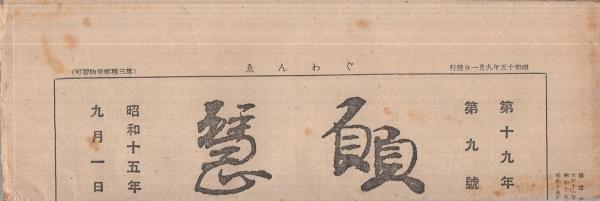 昭和十五年九月一日發行
ぐわんゑ
(第三種郵便物認可)
第十九年
第九號
願慧
昭和十五年
九月一日